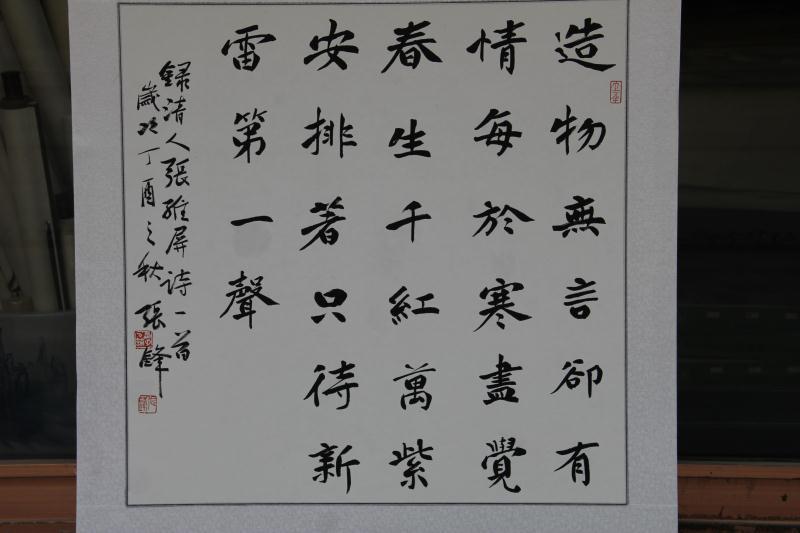 造物無言卻有
情每於寒盡覺
春生千紅萬紫
安排著只待新
雷第一聲
錄清人張維屏詩一首
歲次丁酉之秋張鋒